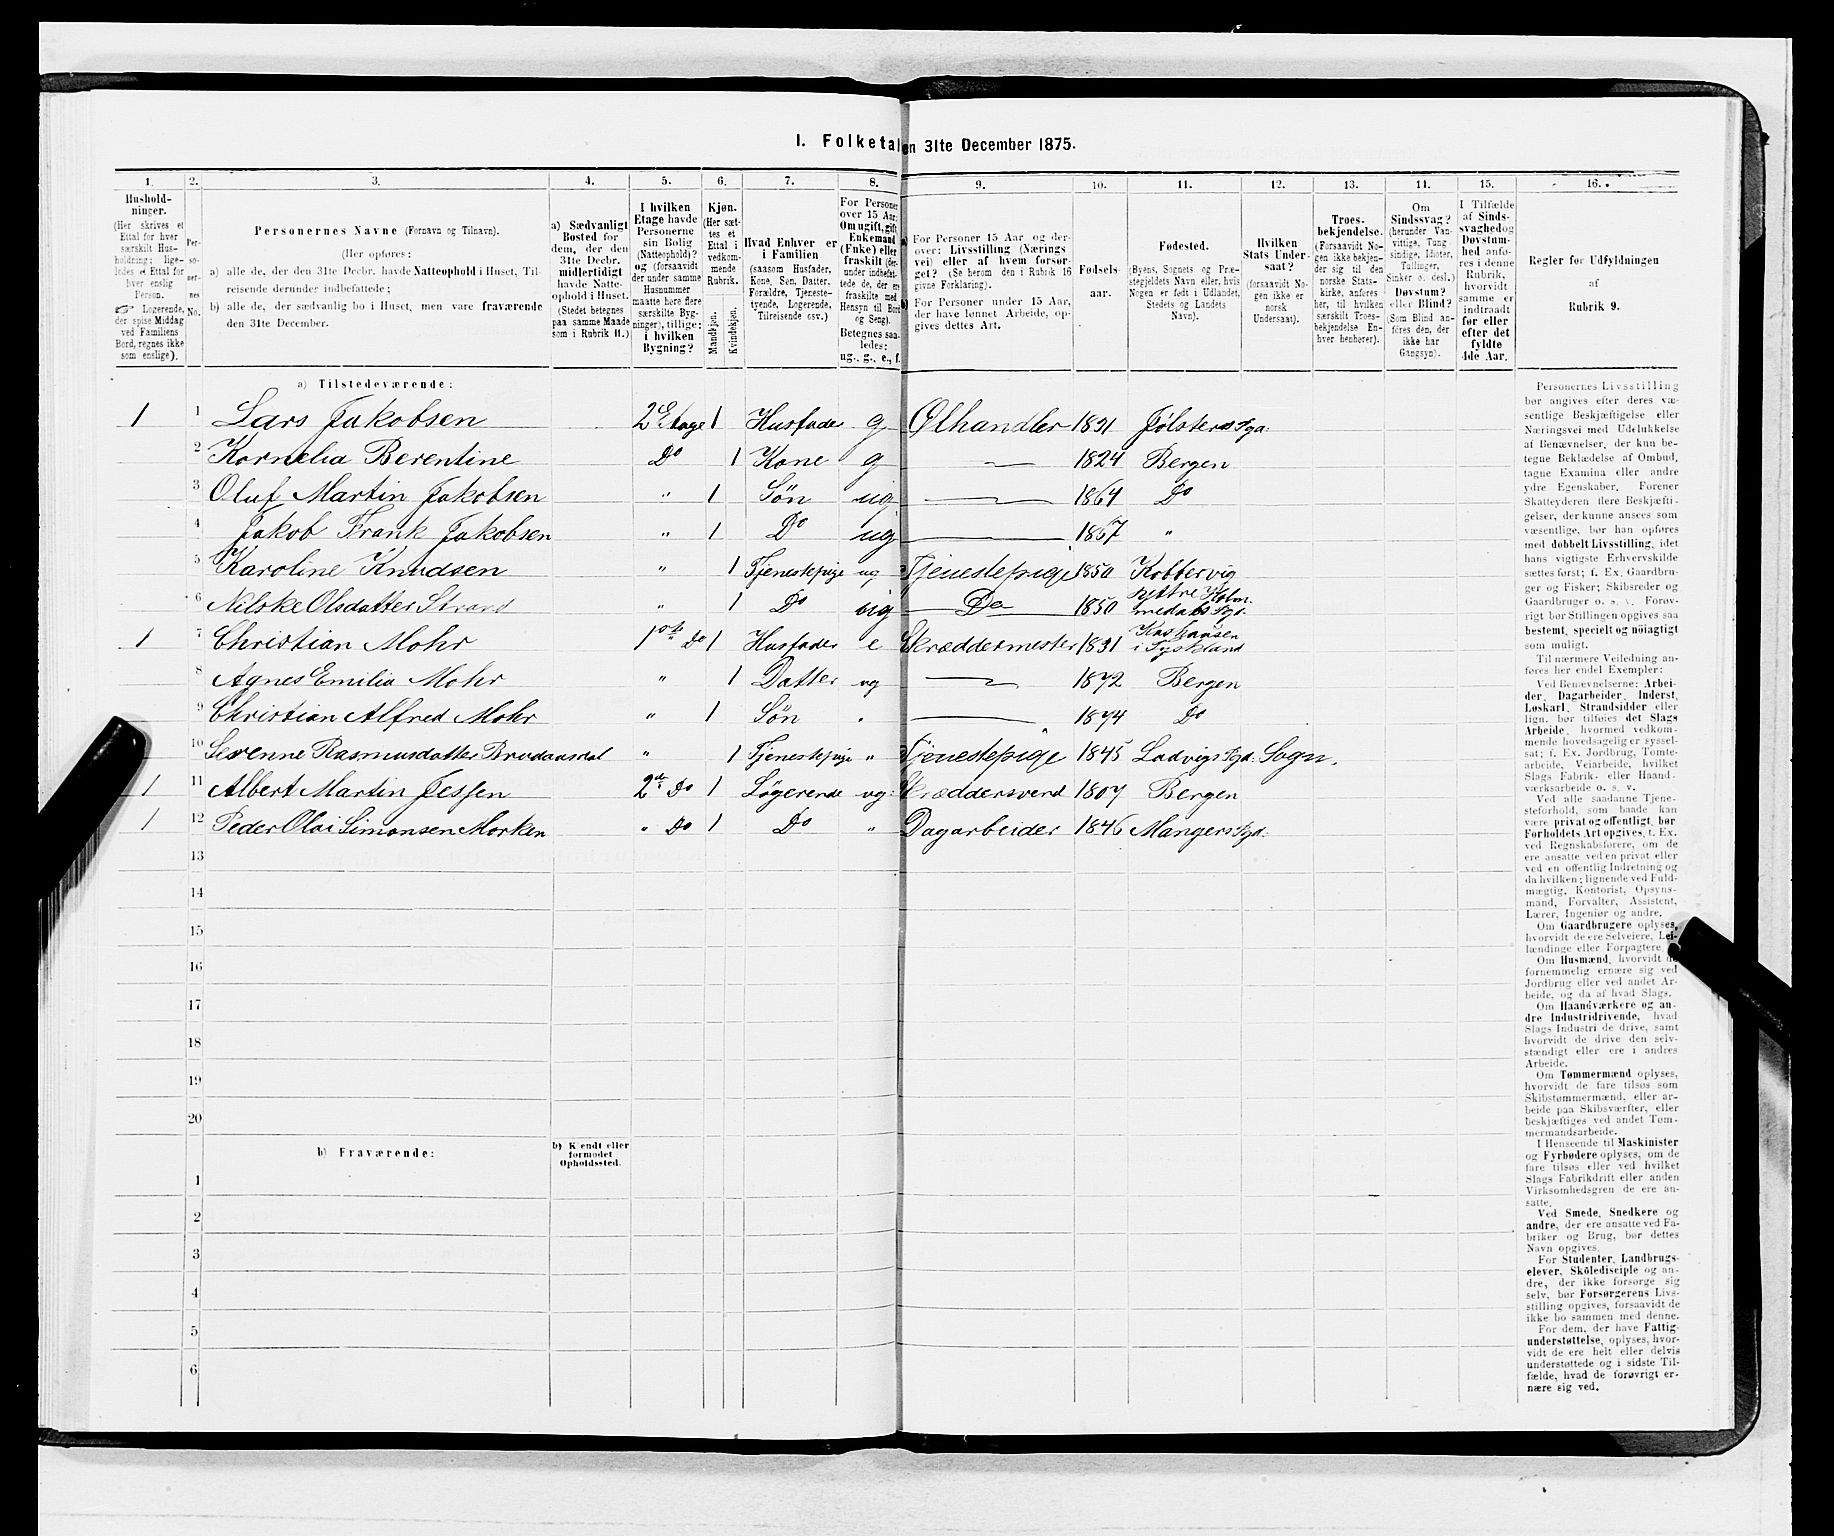 I. Folketallen 31te December 1875.
1.
2.
3.
4.
5.
6.
7.
8.
9.
10.
11.
12.
13.
14.
15.
16.
Hushold-
ninger.
(Her skrives et
Ettal for hver
særskilt Hus-
holdning; lige-
ledes et Ettal for
hver enslig
Person.
☞ Logerende,
der spise Middag
ved Familiens
Bord, regnes ikke
som enslige).
Per-
so-
ner-
nes
No.
Personernes Navne (Fornavn og Tilnavn).
(Her opføres:
a) alle de, der den 31te Decbr. havde Natteophold i Huset, Til-
reisende derunder indbefattede;
b) alle de, der sædvanlig bo i Huset, men vare fraværende
den 31te December.
a) Sædvanligt
Bosted for
dem, der den
31te Decbr.
midlertidigt
havde Natte-
ophold i Huset.
(Stedet betegnes
paa samme Maade
som i Rubrik 11.)
I hvilken
Etage havde
Personerne
sin Bolig
(Natteophold)?
og (forsaavidt
der under samme
Husnummer
maatte here flere
særskilte Byg-
ninger), tillige:
i hvilken
Bygning?
Kjøn.
(Her sæt-
tes et
Ettal i
vedkom-
mende
Rubrik.
Mandkjøn.
Kvindekjøn.
Hvad Enhver er
i Familien
(saasom Husfader,
Kone, Søn, Datter,
Forældre, Tjeneste-
tyende, Logerende,
Tilreisende osv.)
For Personer
over 15 Aar:
Om ugift, gift,
Enkemand
(Enke) eller
fraskilt (der-
under indbefat-
tede de, der ere
fraskilte med
Hensyn til Bord
og Seng).
Betegnes saa-
ledes:
ug., g., e., f.
a) For Personer 15 Aar og der-
over: Livsstilling (Nærings-
vei) eller af hvem forsør-
get? (Se herom den i Rubrik 16
givne Forklaring).
b) For Personer under 15 Aar,
der have lønnet Arbeide, op-
gives dettes Art.
Fødsels-
aar.
Fødested.
(Byens, Sognets og Præ-
stegjeldets Navn eller, hvis
Nogen er født i Udlandet,
Stedets og Landets
Navn).
Hvilken
Stats Under-
saat?
(forsaavidt No-
gen ikke er
norsk
Undersaat).
Troes-
bekjendelse.
(Forsaavidt No-
gen ikke bekjen-
der sig til den
norske Stats-
kirke, anføres
her, til hvilken
særskilt Troes-
bekjendelse En-
hver henhører).
Om
Sindssvag?
(herunder Van-
vittige, Tung-
sindige, Idioter,
Tullinger,
Sinker o. desl.)
Døvstum?
eller Blind?
(Som Blind an-
føres den, der
ikke har
Gangsyn).
I Tilfælde
af Sinds-
svaghed og
Døvstum-
hed anfø-
res i denne
Rubrik,
hvorvidt
samme er
indtraadt
før eller
efter det
fyldte
4de Aar.
Regler for Udfyldningen
af
Rubrik 9.
a) Tilstedeværende:
1 1 Lars Jakobsen 2 Etage 1 Husfader g Ølhandler 1831 Jølsters Pgd.
2 Kornelia Berentine Do 1 Kone g — 1824 Bergen
3 Oluf Martin Jakobsen " 1 Søn ug — 1864 Do
4 Jakob Frank Jakobsen " 1 Do ug — 1867 "
5 Karoline Knudsen " 1 Tjenestepige ug Tjenestepige 1850 Kobbervig
6 Nilske Olsdatter Strand " 1 Do ug Do 1850 Yttre Holm-
medals Pgd.
1 7 Christian Mohr 1ste Do 1 Husfader e Skræddermester 1831
i Tyskland
8 Agnes Emilia Mohr " 1 Datter ug — 1872 Bergen
9 Christian Alfred Mohr " 1 Søn " — 1874 Do
10 Serenne Rasmusdatter " 1 Tjenestepige " Tjenestepige 1845 Ladvigs Pgd. Sogn.
1 11 Albert Martin Jessen 2den Do 1 Logerende ug. Skræddersvend 1807 Bergen
1 12 Peder Olai Simonsen Morken " Do 1 Do " Dagarbeider 1846 Mangers Pgd.
13
14
15
16
17
18
19
20
b) Fraværende:
b) Kjendt eller
formodet
Opholdssted.
1
2
3
4
5
6
Personernes Livsstilling
bør angives efter deres væ-
sentlige Beskjæftigelse eller
Næringsvei med Udelukkelse
af Benævnelser, der kun be-
tegne Beklædelse af Ombud,
tagne Examina eller andre
ydre Egenskaber. Forener
Skatteyderen flere Beskjæfti-
gelser, der kunne ansees som
væsentlige, bør han opføres
med dobbelt Livsstilling, idet
hans vigtigste Erhvervskilde
sættes først; f. Ex. Gaardbru-
ger og Fisker; Skibsreder og
Gaardbruger o. s. v. Forøv-
rigt bør Stillingen opgives saa
bestemt, specielt og nöiagtigt
som muligt.
Til nærmere Veiledning an-
føres her endel Exempler:
Ved Benævnelserne: Arbei-
der, Dagarbeider, Inderst,
Løskarl, Strandsidder eller
lign. bør tilføies det Slags
Arbeide, hvormed vedkom-
mende hovedsagelig er syssel-
sat; f. Ex. Jordbrug, Tomte-
arbeide, Veiarbeide, hvilket
Slags Fabrik- eller Haand-
værksarbeide o. s. v.
Ved alle saadanne Tjene-
steforhold, som baade kan
være privat og offentligt, bør
Forholdets Art opgives, t. Ex.
ved Regnskabsførere, om de
ere ansatte ved en privat eller
ved en offentlig Indretning og
da hvilken; lignende ved Fuld-
mægtig, Kontorist, Opsyns-
mand, Forvalter, Assistent,
Lærer, Ingeniør og andre.
Om Gaardbrugere oplyses,
hvorvidt de ere Selveiere, Lei-
lændinge eller Forpagtere.
Om Husmænd, hvorvidt de
fornemmelig ernære sig ved
Jordbrug eller ved andet Ar-
beide, og da af hvad Slags.
Om Haandværkere og an-
dre Industridrivende, hvad
Slags Industri de drive, samt
hvorvidt de drive den selv-
stændigt eller ere i andres
Arbeide.
Om Tømmermænd oplyses,
hvorvidt de fare tilsøs som
Skibstømmermænd, eller ar-
beide paa Skibsværfter, eller
beskjæftiges ved andet Tøm-
mermandsarbeide.
I Henseende til Maskinister
og Fyrbødere oplyses, om de
fare tilsøs eller ved hvilket
Slags Fabrikdrift eller anden
Virksomhedsgren de ere an-
satte.
Ved Smede, Snedkere og
andre, der ere ansatte ved Fa-
briker og Brug, bør dettes
Navn opgives.
For Studenter, Landbrugs-
elever, Skoledisciple og an-
dre, der ikke forsørge sig
selv, bør Forsørgerens Livs-
stilling opgives, forsaavidt de
ikke bo sammen med denne.
For dem, der have Fattig-
understøttelse, oplyses, hvor-
vidt de ere helt eller delvis
understøttede og i sidste Til-
fælde, hvad de forøvrigt er-
nære sig ved.